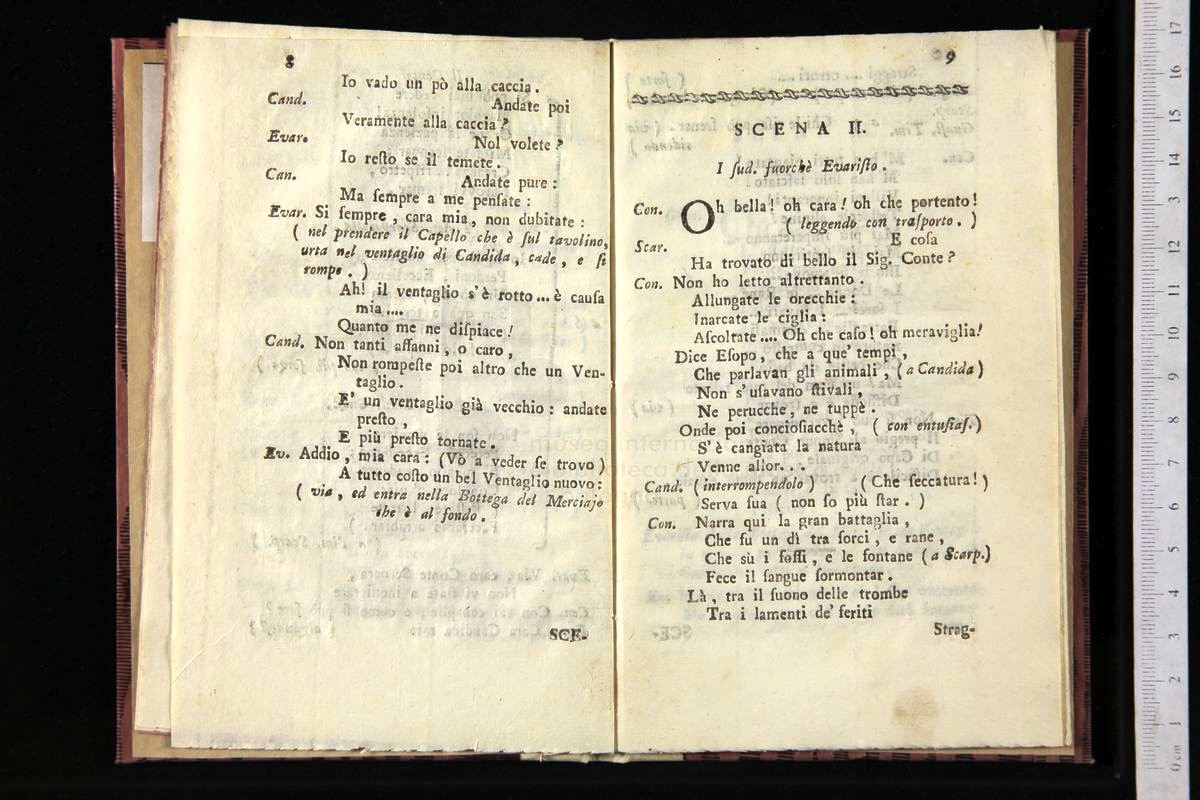 8
Io vado un pò alla caccia.
Cand. Andate poi
Veramente alla caccia?
Evar. Nol volete?
Io reſto se il temete.
Can. Andate pure:
Ma ſempre a me penſate:
Evar. Si ſempre, cara mia, non dubitate:
( nel prendere il Capello che è ſul tavolino,
urta nel ventaglio di Candida, cade, e ſi
rompe. )
Ah! il ventaglio s'è rotto... è cauſa
mia....
Quanto me ne diſpiace!
Cand. Non tanti affanni, o caro,
Non rompeſte poi altro che un Ven-
taglio.
E' un ventaglio già vecchio: andate
preſto,
E più preſto tornate.
Ev. Addio, mia cara: (Vò a veder ſe trovo)
A tutto coſto un bel Ventaglio nuovo:
( via, ed entra nella Bottega del Merciajo
che è al fondo.
SCE-
9
SCENA II.
I ſud. fuorchè Evariſto.
Con. Oh bella! oh cara! oh che portento!
( leggendo con traſporto. )
Scar. E coſa
Ha trovato di bello il Sig. Conte?
Con. Non ho letto altrettanto.
Allungate le orecchie:
Inarcate le ciglia:
Aſcoltate.... Oh che caſo! oh meraviglia!
Dice Eſopo, che a que' tempi,
Che parlavan gli animali, (a Candida)
Non s'uſavano ſtivali,
Ne perucche, ne tuppè.
Onde poi concioſiacchè, ( con entuſiaſ.)
S'è cangiata la natura
Venne allor...
Cand. (interrompendolo) (Che ſeccatura!)
Serva ſua ( non ſo più ſtar. )
Con. Narra qui la gran battaglia,
Che fu un dì tra ſorci, e rane,
Che sù i foſſi, e le fontane (a Scarp.)
Fece il ſangue ſormontar.
Là, tra il ſuono delle trombe
Tra i lamenti de' feriti
Strag-